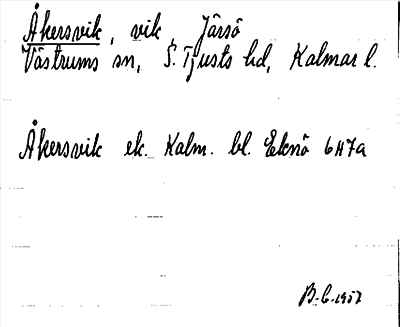 Åkersvik, vik, Järsö
Västrums sn, S. Tjusts hd, Kalmar l.
Åkersvik ek. Kalm. bl. Eknö 6H7a
B.C. 1957